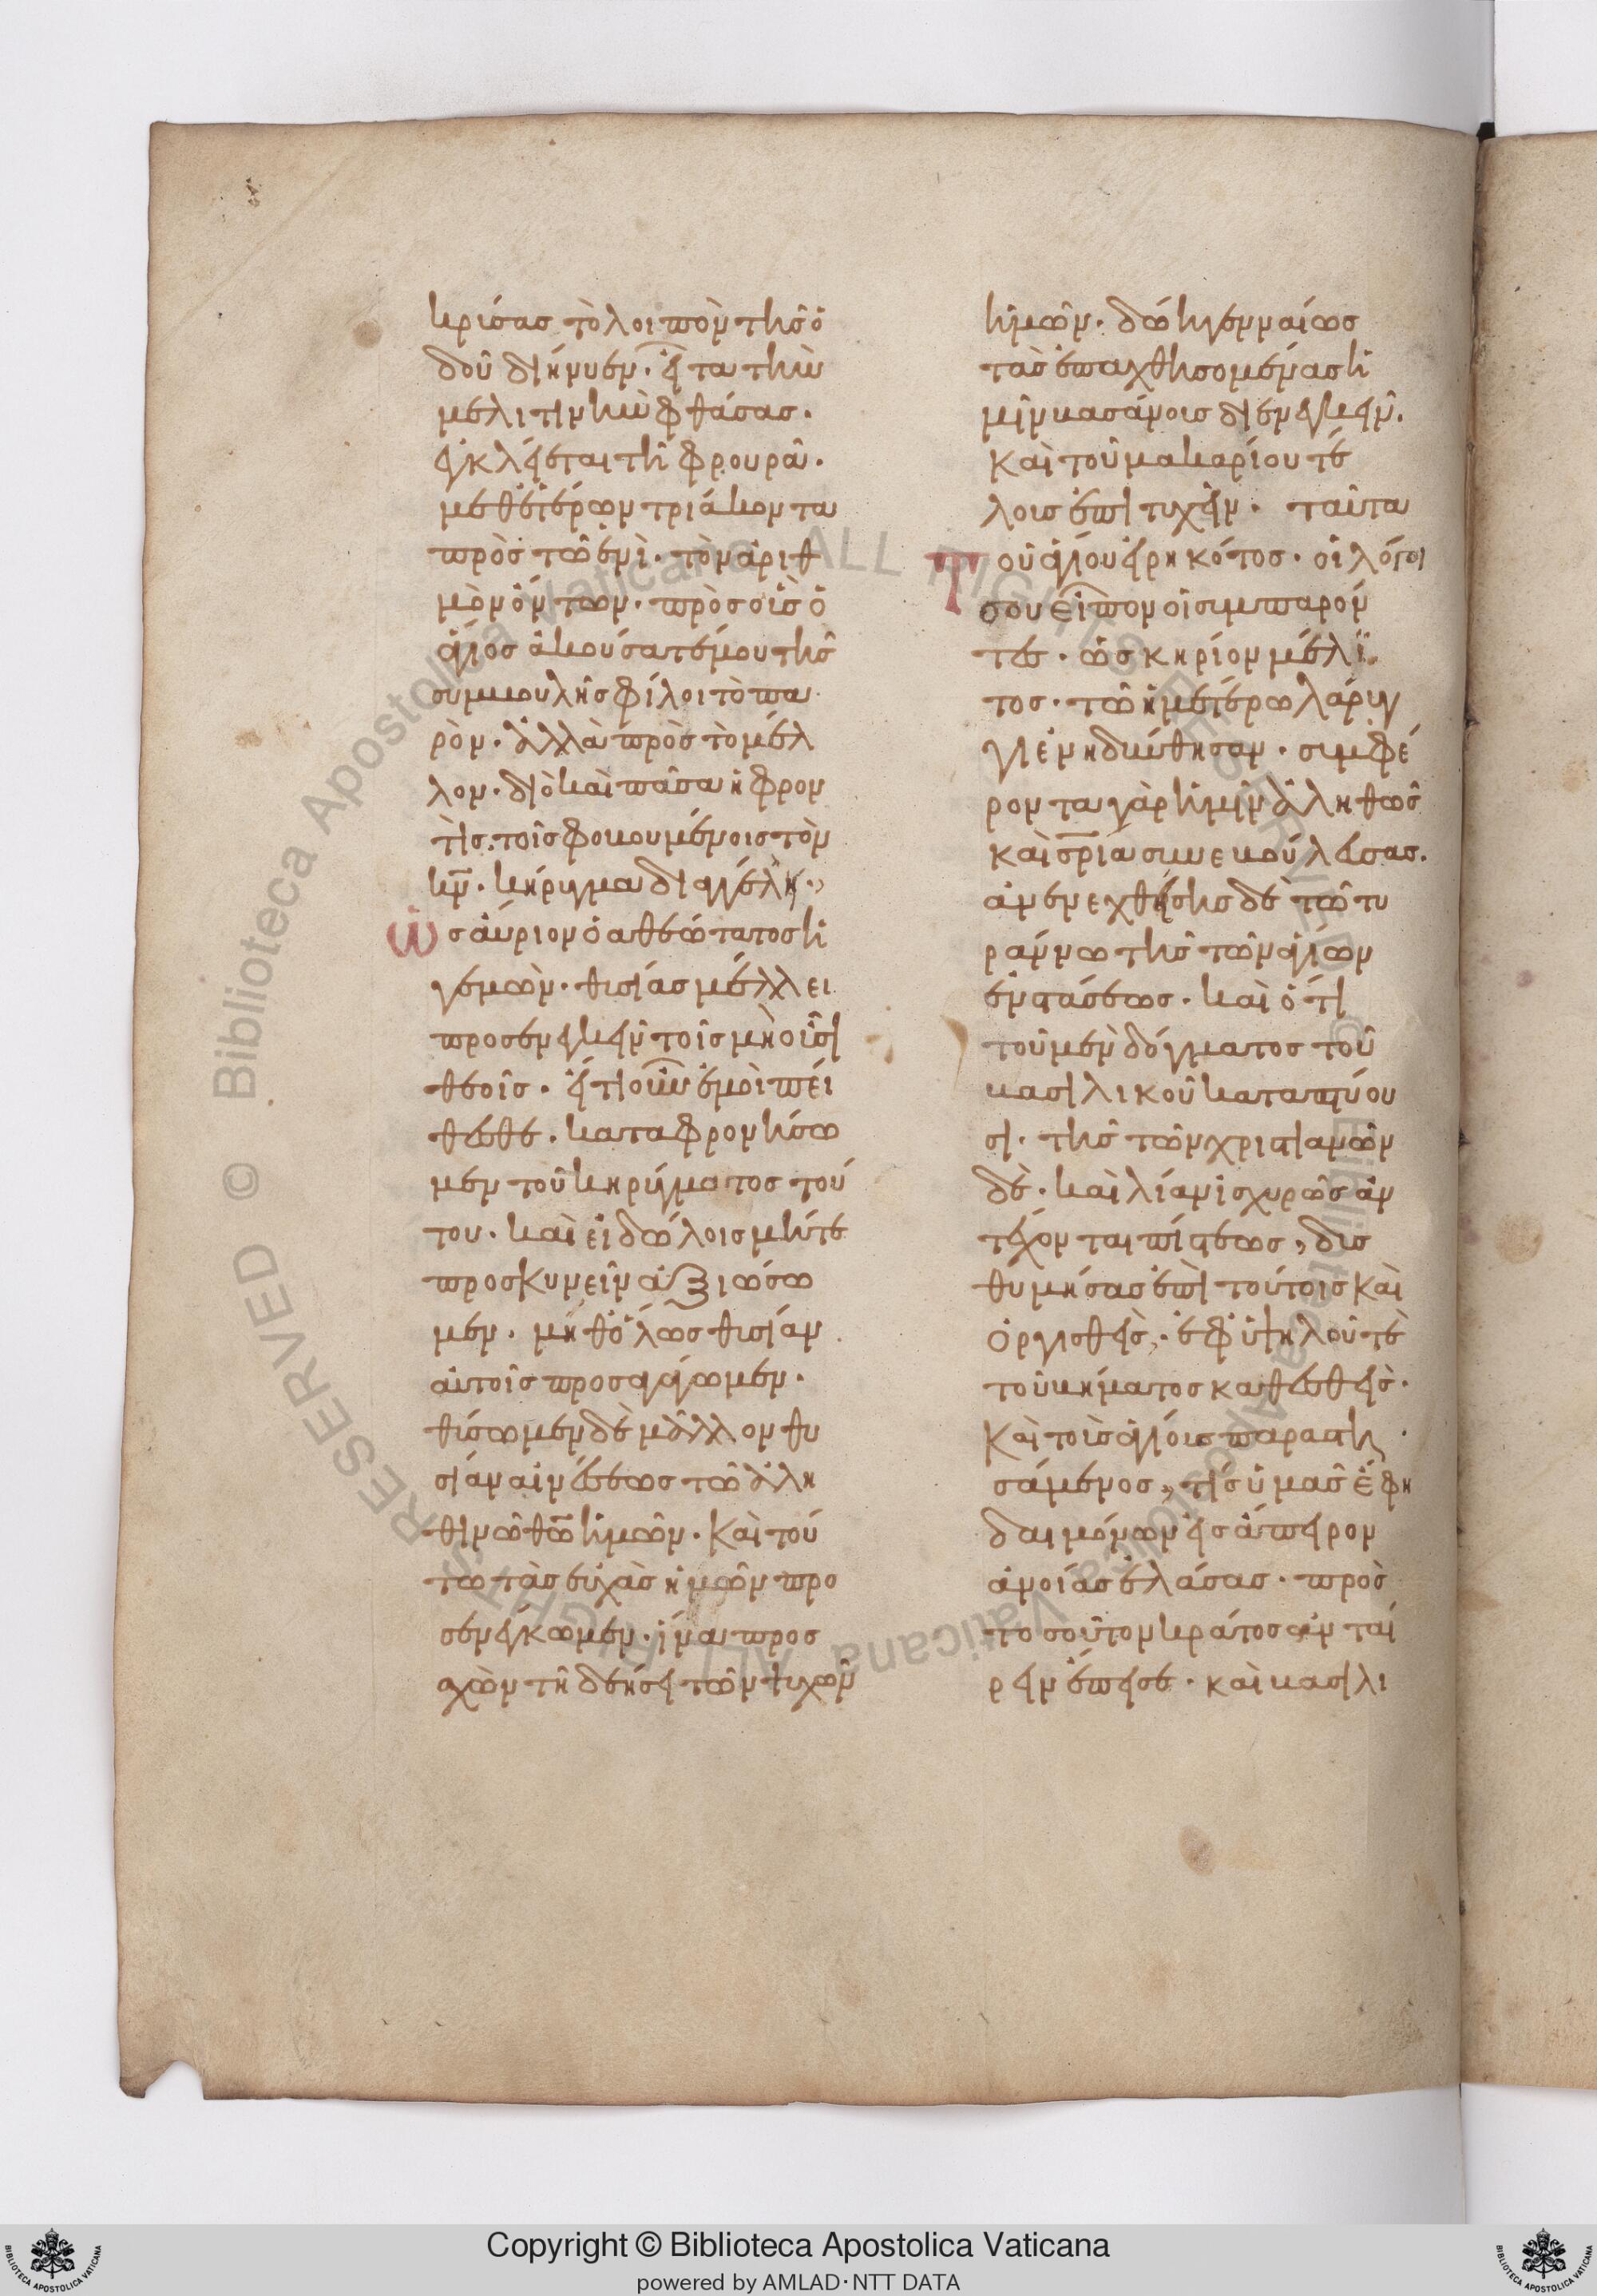 κρίσας τὸ λοιπὸν τῆς ὁ
δοῦ διήνυεν· εἶτα τὴν
μελιτινὴν φθάσας·
εἰγκλείεται τῇ φρουρᾶ·
μεθ' ἑτέρων τριάκοντα
πρὸς τῶ ἑνὶ· τὸν ἀριθ
μὸν ὄντων· πρὸς οἷς ὁ
ἅγιος ἀκούσατέ μου τῆς
συμβουλῆς φίλοι τὸ πα
ρὸν· ἀλλὰ πρὸς τὸ μέλ
λον· διὸ καὶ πᾶσα ἡ φρον
τὶς τοῖς φοβουμένοις τὸν
κν· κήρυγμα διαγγέλη·
ὡς ἄυριον ὁ αθεώτατος ἡ
γεμὼν· θυσίας μέλλει
προσενεγκεῖν τοῖς μὴ οὖσι
θεοῖς· εἴ τι οὖν ἐμοὶ πεί
θεσθε· καταφρονήσω
μεν τοῦ κηρύγματος τού
του· καὶ εἰδώλοις μήτε
προσκυνεῖν ἀξιώσω
μεν· μήθ' ὅλως θυσίαν
αὐτοῖς προσαγάγωμεν·
θύσωμεν δὲ μᾶλλον θυ
σίαν αἰνέσεως τῶ ἀλη
θινῶ θω ἡμῶν· καὶ τού
τω τὰς εὐχὰς ἡμῶν προ
σενέγκωμεν· ἵνα προσ
χὼν τῆ δεήσει τῶν ψυχῶν
ἡμῶν· δώη γενναίως
τὰς ἐπαχθησομένας ἡ
μῖν βασάνοις διενεγκεῖν·
καὶ τοῦ μακαρίου τέ
λους ἐπιτυχεῖν· ταῦτα
τοῦ ἁγίου εἰρηκότος· οἱ λόγοι
σου εἶπον οἱ συμπαρόν
τες· ὡς κηρίον μέλι
τος· τῶ ἡμετέρω λάρυγ
γι ἐνηδύνθησαν· συμφέ
ροντα γὰρ ἡμῖν ἀληθῶς
καὶ σριά συνεβούλευσας·
ἀνενεχθείσης δὲ τῶ τυ
ράννω τῆς τῶν ἁγίων
ἐνστάσεως· καὶ ὅτι
τοῦ μὲν δόγματος τοῦ
βασιλικοῦ καταπτύου
σι· τῆς τῶν χριστιανῶν
δὲ· καὶ λίαν ἰσχυρῶς ἀν
τέχονται πίστεως, δυσ
θυμήσας ἐπὶ τούτοις καὶ
ὀργισθεὶς· ἐφ' ὑψηλοῦ τὲ
τοῦ βήματος καθεσθεὶς·
καὶ τοὺς ἁγίους παραστη
σάμενος, τίς ὑμᾶς ἔφη
δαιμόνων εἰς ἄπειρον
ἀνοίας ἐλάσας· πρὸς
τοσοῦτον κράτος ἀνταί
ρειν ἔπεισε· καὶ βασιλι